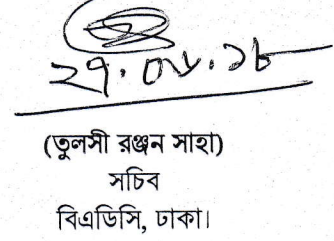 ২৭.০৮.১৮
(তুলসী রঞ্জন সাহা)
সচিব
বিএডিসি, ঢাকা।